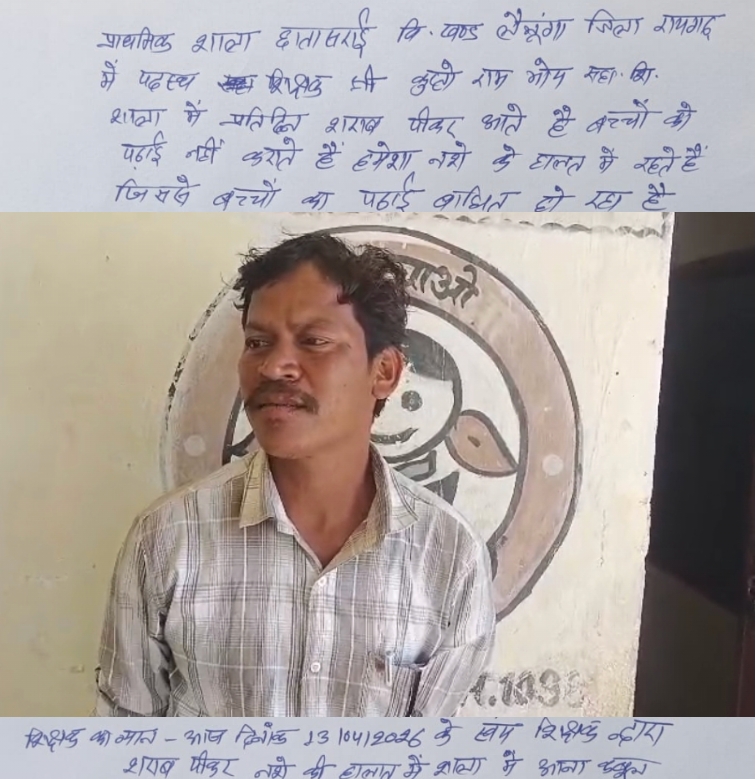 प्राथमिक शाला छातासराई वि. खण्ड लैलूंगा जिला रायगढ़
में पदस्थ शिक्षक श्री राम भोय सहा. शि.
शाला में प्रतिदिन शराब पीकर आते है बच्चों को
पढ़ाई नहीं कराते हैं हमेशा नशे के हालत में रहते हैं
जिससे बच्चों का पढाई बाधित हो रहा है
शिक्षक का ब्यान - आज दिनाँक 13/04/2026 के स्वंय शिक्षक द्वारा
शराब पीकर नशे की हालत में शाला में आना कबूल